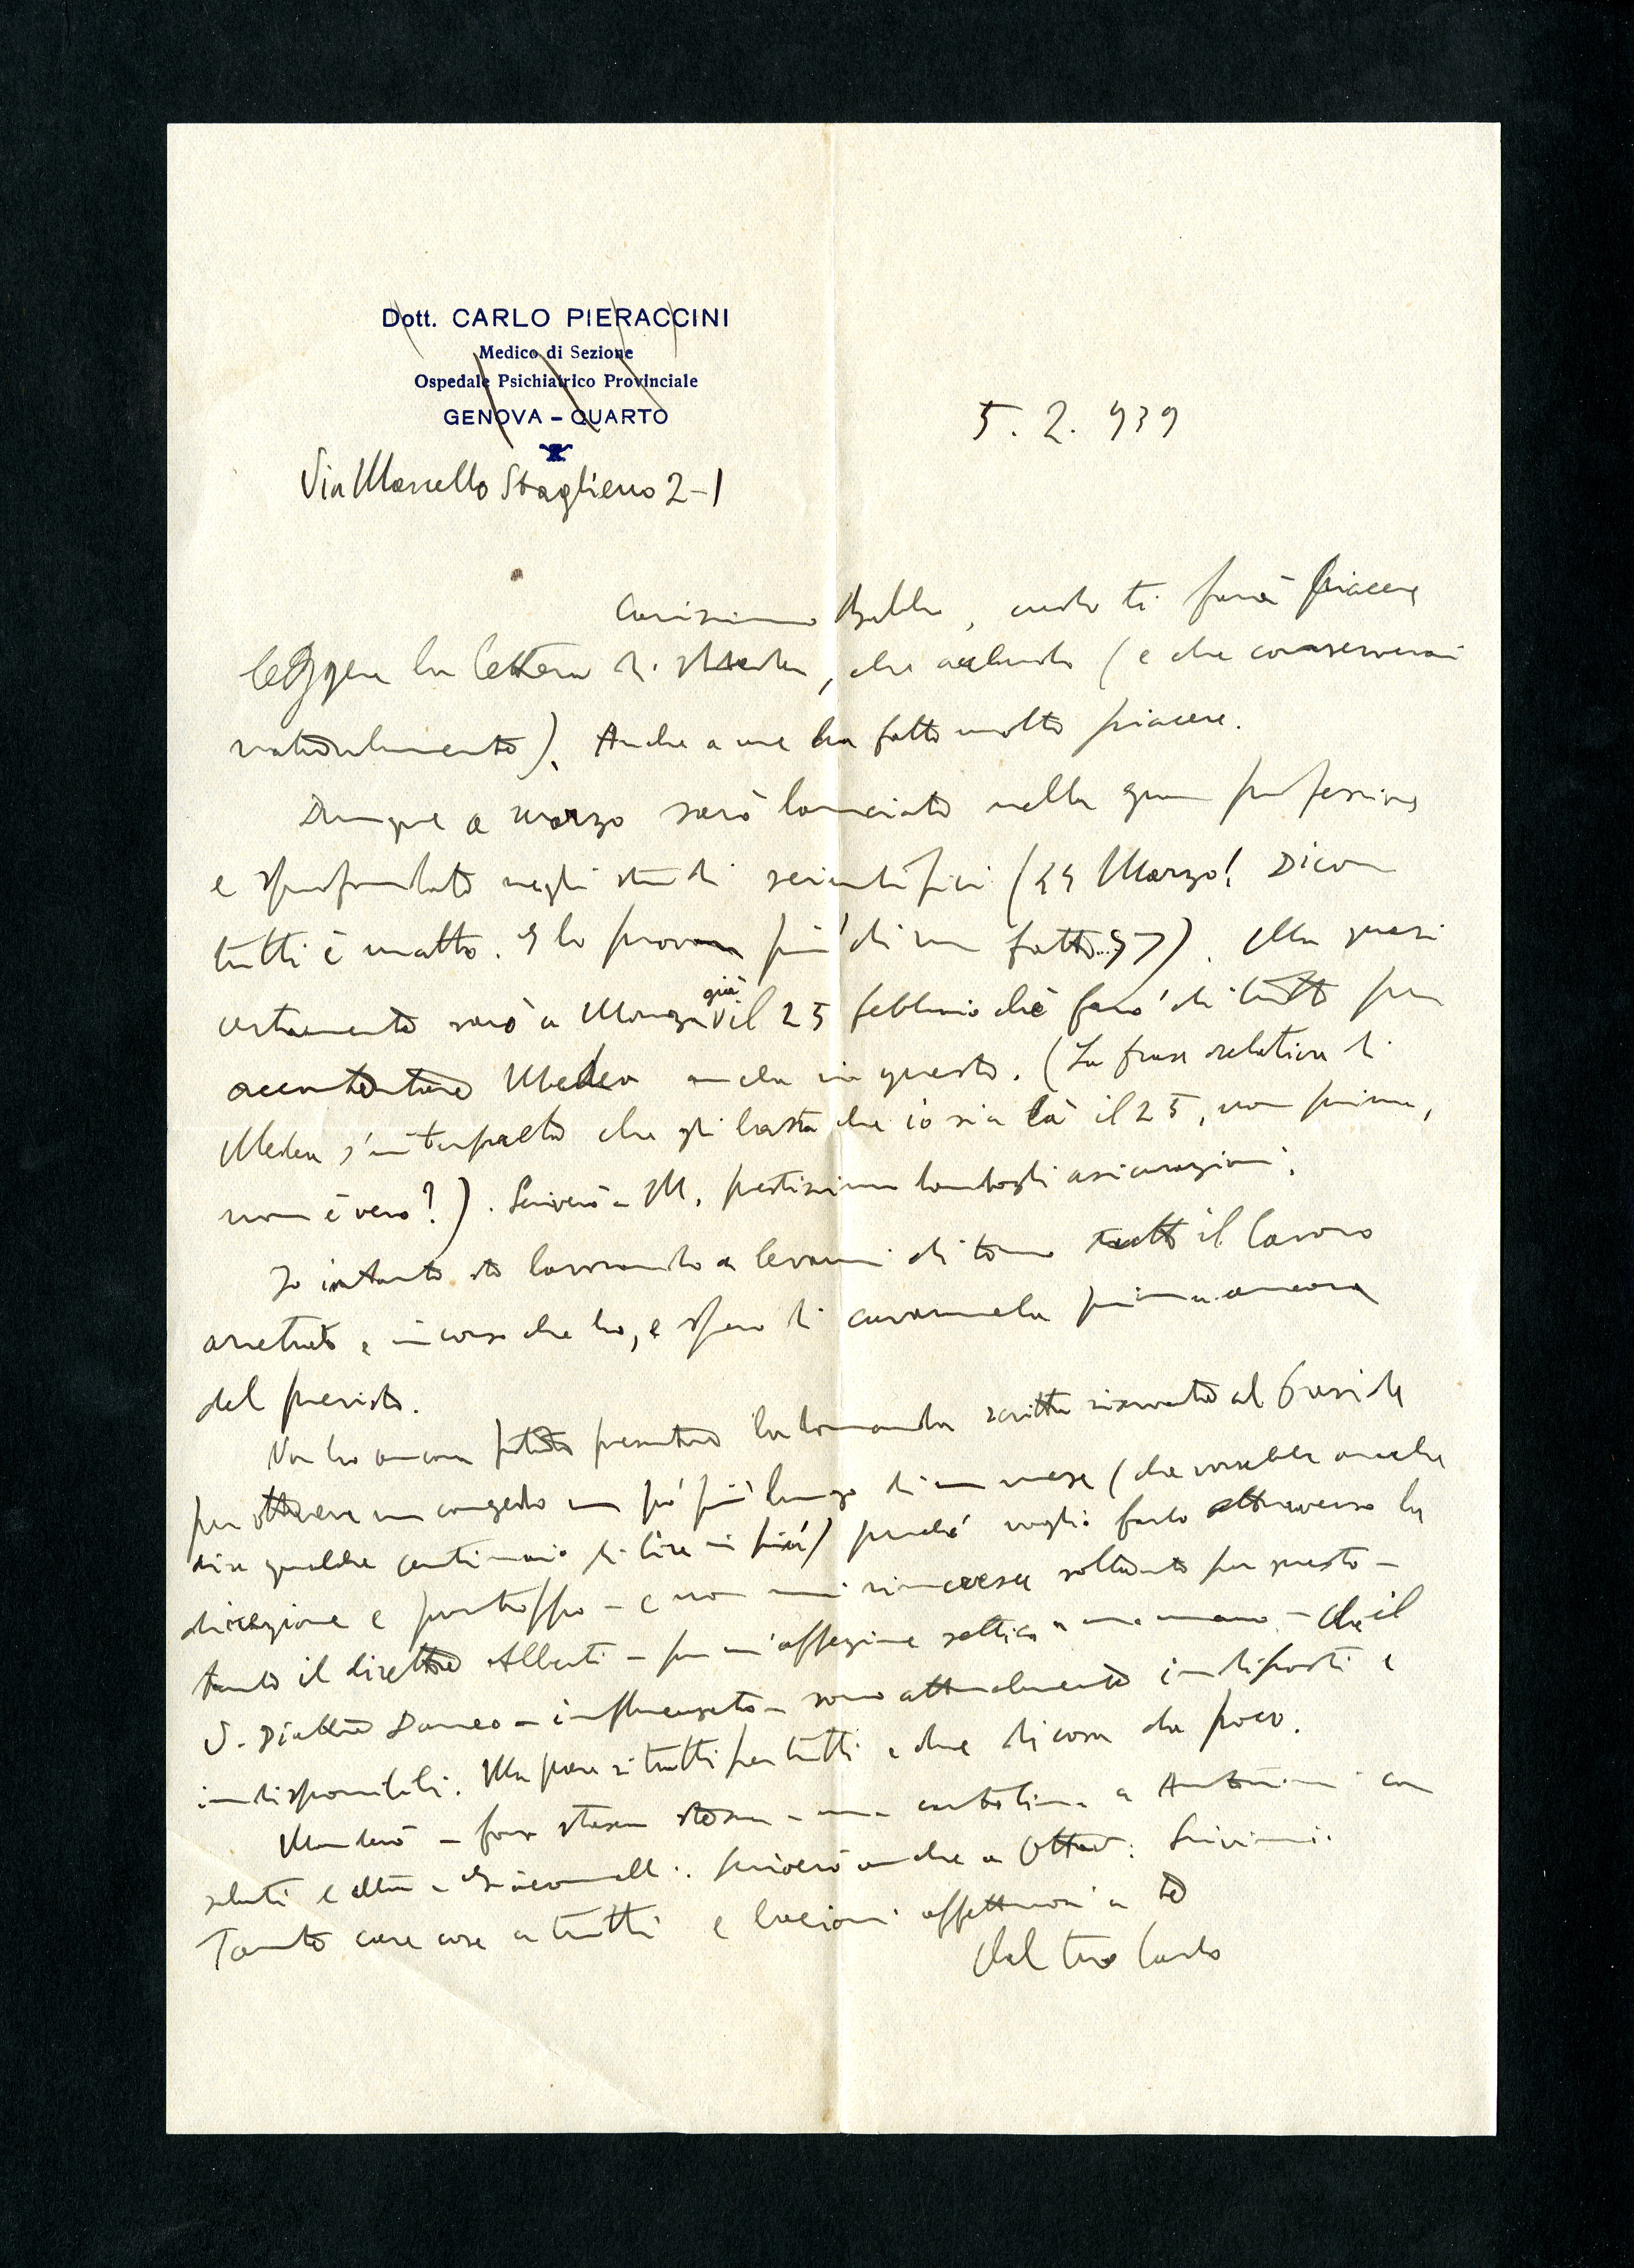 Dott. CARLO PIERACCINI
Medico di Sezione
Ospedale Psichiatrico Provinciale
GENOVA - QUARTO
5. 2. 939
Via Marcello Staglieno 2-1
Carissimo Babbo, credo ti farà piacere
leggere la lettera di Medea, che accludo (e che conserverai
naturalmente). Anche a me ha fatto molto piacere.
Dunque a marzo sarò lanciato nella gran professione
e sprofondato negli studi scientifici ( Marzo! Dicon
tutti è matto. E lo provan più di un fatto..). Ma quasi
certamente sarò a Monza già il 25 febbraio chè farò di tutto per
accontentare Medea anche in questo. (La frase relativa di
Medea s'interpreta che gli basta che io sia là il 25, non prima,
non è vero?). Scriverò a M. prestissimo dandogli assicurazioni.
Io intanto sto lavorando a levarmi di torno tutto il lavoro
arretrato e in corso che ho, e spero di cavarmela prima ancora
del previsto.
Non ho ancora potuto presentare la domanda scritta riservata al Preside
per ottenere un congedo un pò più lungo di un mese (che vorrebbe anche
dire qualche centinaio di lire in più) perchè voglio farlo attraverso la
direzione e purtroppo - e non mi rincresce soltanto per questo -
tanto il direttore Alberti - per un'affezione settica a una mano - che il
V. Direttore Daneo - influenzato - sono attualmente indisposti e
indisponibili. Ma pare si tratti per tutti e due di cosa da poco.
Manderò - forse stasera stessa - una cartolina a Antonini con
saluti e a Giacomelli. Scriverò anche a Scrivimi.
Tante care cose a tutti e bacioni affettuosi a te
dal tuo Carlo